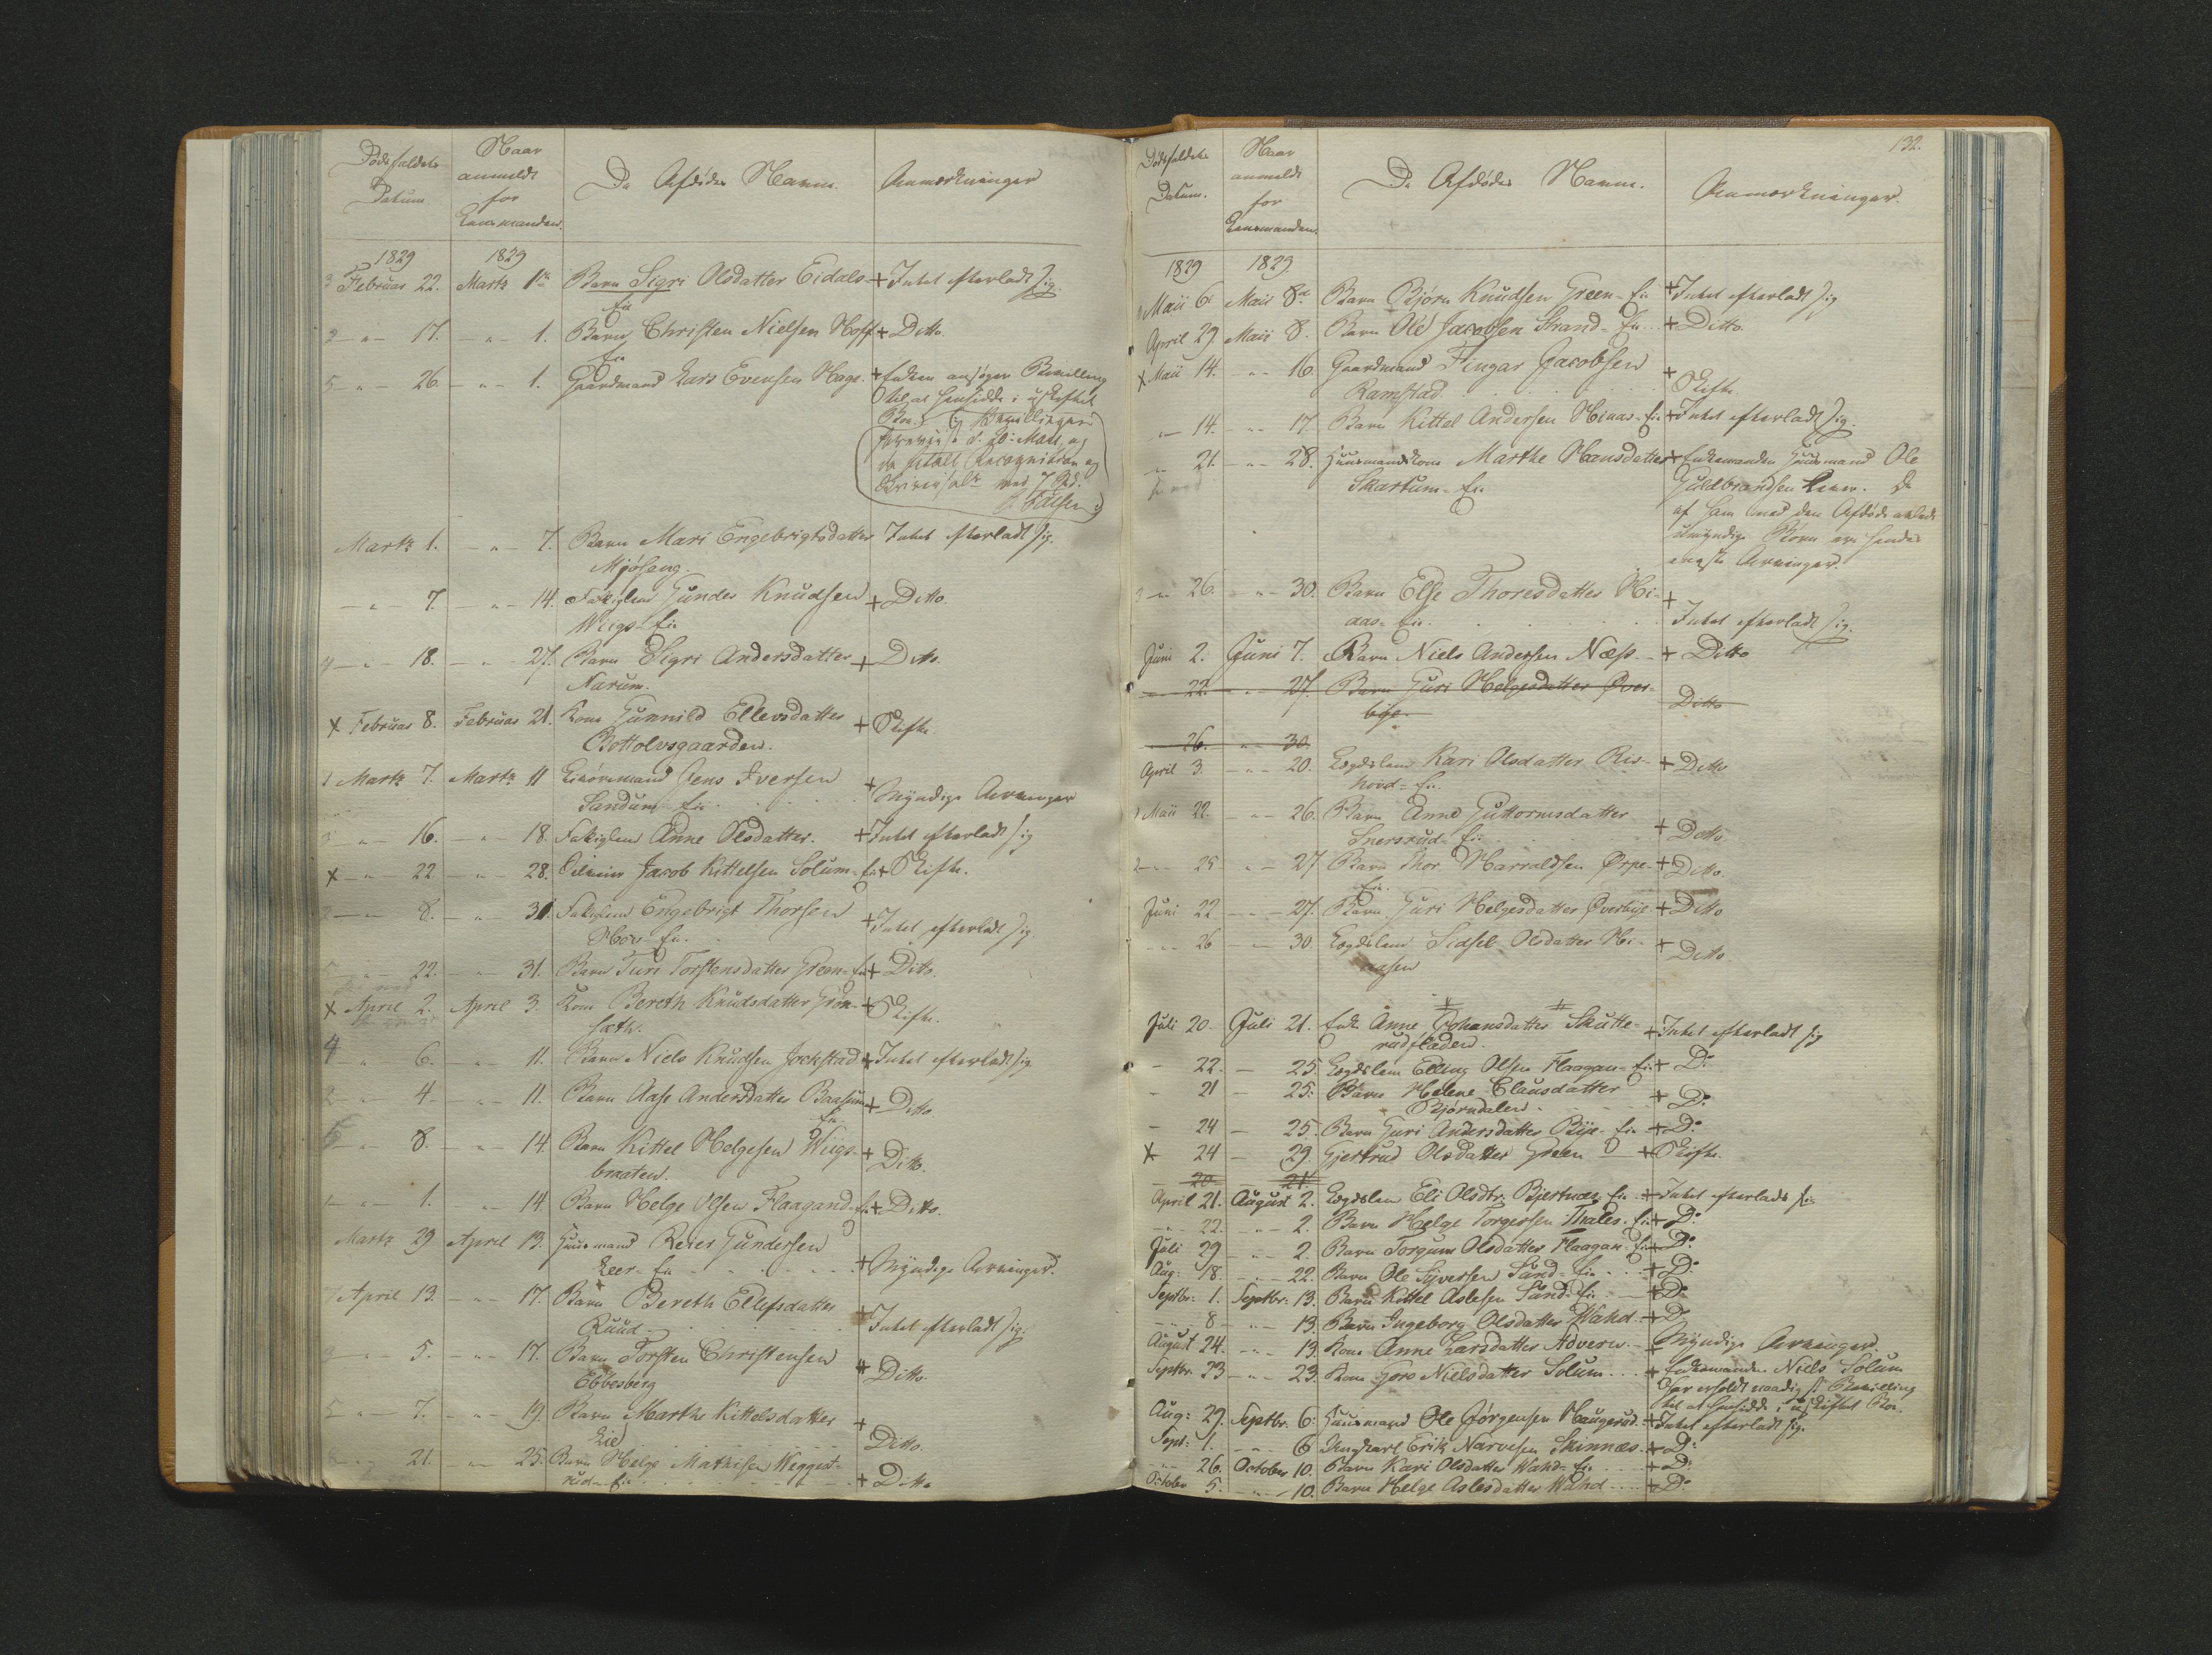 Dødsfaldets Datum
Naar anmeldt for Lensmanden.
De Afdødes Navne.
Anmærkninger
1829 1829
3 Februar 22. Marts 1ste Barn Sigri Olsdatter Eidals- + Intet efterladt sig.
Eie
2 - " - 17. - " - 1. Barn Christen Nielsen Hoff + Ditto.
Eie
5 - " - 26. - " - 1. Gaardmand Lars Evensen Hage. + Enken ansøger Bevilling
til at hensidde i uskiftet
Boe.
og
7 Spd.
Marts 1. - " - 7. Barn Mari Engebrigtsdatter Intet efterladt sig.
Mjøseng.
- " - 7. - " - 14. Fattiglem Gunder Knudsen + Ditto.
Wiigs-Eie
4 - " - 18. - " - 27. Barn Sigri Andersdatter + Ditto.
Narum.
x Februar 8. Februar 21. Kone Gunnild Ellevsdatter + Skifte
Bottolvsgaarden.
1 Marts 7. Marts 11 Jens Iversen
Sandum Eie + Myndige Arvinger
3 - " - 16. - " - 18. Fattiglem Anne Olsdatter. + Intet efterladt sig
x - " - 22 - " - 28. Jacob Kittelsen Solum-Eie + Skifte.
2 - " - 8. - " - 31. Fattiglem Engebrigt Thorsen + Intet efterladt sig
Eie.
5 - " - 22. - " - 31. Barn Turi Torstensdatter Green-Eie + Ditto.
x April 2. April 3. Kone Bereth Knudsdatter Grøn- + Skifte.
sæth.
4 - " - 6. - " - 11. Barn Niels Knudsen Jockstad + Intet efterladt sig
2 - " - 4 - " - 11. Barn Aase Andersdatter Baasum + Ditto.
Eie
5 - " - 8. - " - 14. Barn Kittel Helgesen Wiigs- + Ditto.
braaten.
1 - " - 1. - " - 14. Barn Helge Olsen Flaagand-Eie + Ditto.
Marts 29 April 13. Huusmand Reier Gundersen
Leer-Eie + Myndige Arvinger.
April 13. - " - 17. Barn Bereth Ellefsdatter
Ruud + Intet efterladt sig.
3 - " - 5. - " - 17. Barn Torsten Christensen + Ditto.
Ebbesberg
5 - " - 7. - " - 19. Barn Marthe Kittelsdatter +
Lie Ditto.
- " - 21. - " - 25. Barn Helge Mathisen Weggest-
rud-Eie + Ditto
132.
Dødsfaldets Datum.
Naar anmeldt for Lensmanden.
De Afdødes Navne.
Anmærkninger.
1829 1829
Maii 6. Maii 8de Barn Bjørn Knudsen Green-Eie + Intet efterladt sig
April 29. Maii 8. Barn Ole Jacobsen Strand-Eie + Ditto.
x Maii 14. - " - 16. Gaardmand Fingar Jacobsen +
Ramstad. Skifte.
- " - 14. - " - 17. Barn Kittel Andersen Hiaas-Eie + Intet efterladt sig.
- " - 21. - " - 28. Huusmandskone Marthe Hansdatter + Enkemanden Huusmand Ole
Skartum-Eie Guldbrandsen lever. De
af ham med den Afdøde avlede
umyndige Børn ere hendes
eneste Arvinger.
3 - " - 26. - " - 30. Barn Else Thoresdatter Hi- +
aas-Eie. Intet efterladt sig.
Juni 2. Juni 7. Barn Niels Andersen Næss - + Ditto
- " - 22. - " - 27. Barn Guri Helgesdatter Øver-
bye. Ditto
26. - " - 30.
April 3. - " - 20. Lægdslem Kari Olsdatter Ris- + Ditto
hovd-Eie.
1 Maii 22. - " - 26. Barn Anne Guttormsdatter
Snersrud-Eie + Ditto.
2 - " - 25 - " - 27 Barn Thor Harraldsen Ørpe- + Ditto.
Eie.
Juni 22 - " - 27. Barn Guri Helgesdatter Øverbye + Ditto
- " - 26 - " - 30. Lægdslem Sidsel Olsdatter Hi- + Ditto.
aasen
Juli 20. Juli 21. Enke Anne Johansdatter Skutte- + Intet efterladt sig
rudfladen.
- 22. - 25. Lægdslem Elling Olsen Flaagan-Eie + Do
- 21 - 25. Barn Helene Clausdatter + Do
Bjørndalen
- 24 - 25. Barn Guri Andersdatter Bye-Eie + Do
x 24 - 29. Gjertrud Olsdatter Green + Skifte.
20 21.
April 21. August 2. Lægdslem Eli Olsdtr. Bjertnæs-Eie + Intet efterladt sig
- " - 22. - " - 2. Barn Helge Torgersen Thales-Eie + Do
Juli 29 - " - 2. Barn Torgunn Olsdatter Flaagan-Eie Do
Aug: 18. - " - 22. Barn Ole Syversen Sand-Eie + Do
Septbr: 1. Septbr: 13. Barn Kittel Aslesen Sand-Eie + Do
- " - 8 - " - 13. Barn Ingeborg Olsdatter Wahd + Do
August 24. - " - 13. Kone Anne Larsdatter Advern + Myndige Arvinger.
Septbr. 23 - " - 23. Kone Goro Nielsdatter Solum + Enkemanden Niels Solum
har erholdt naadigst Bevilling
til at hensidde i uskiftet Boe.
Aug: 29. Septbr. 6. Huusmand Ole Jørgensen Haugerud + Intet efterladt sig.
Sept: 1. - " - 6 Ungkarl Erik Narvesen Skinnæs + Do
- " - 26. October 10. Barn Kari Olsdatter Wahd-Eie + Do
October 5. - " - 10. Barn Helge Aslesdatter Wahd + Do